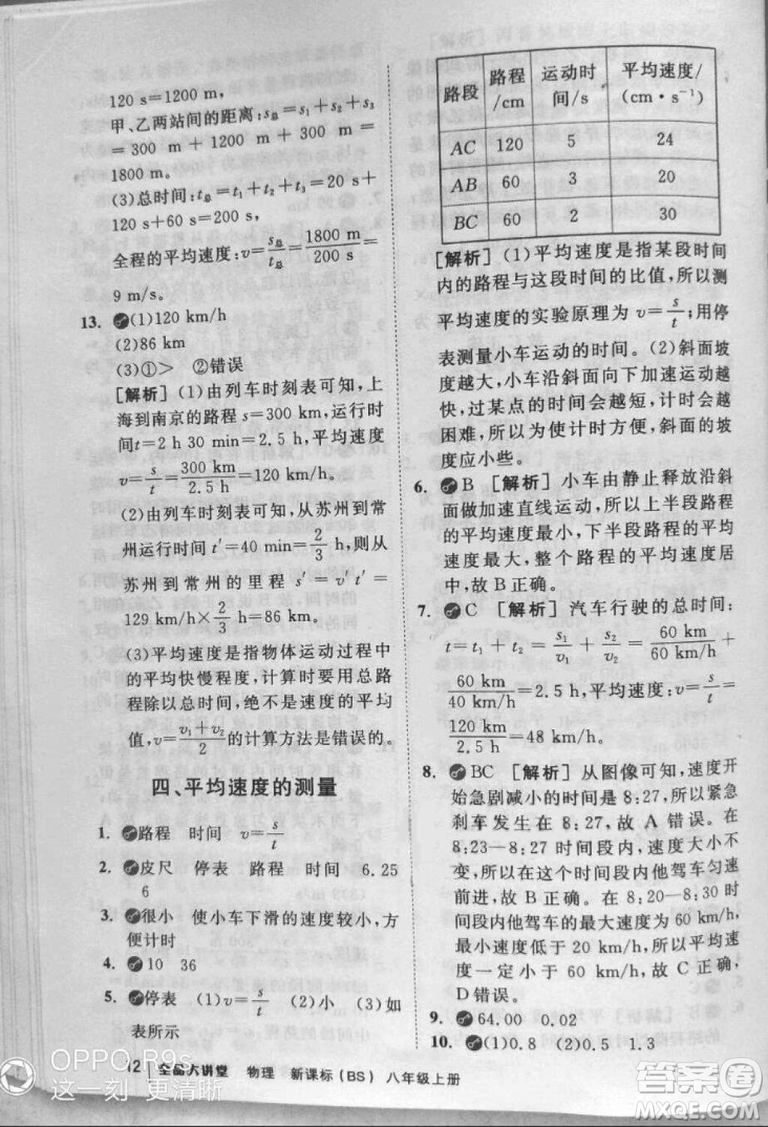 120 s=1200 m.
甲、乙两站间的距离:s总=s₁+s₂+s₃
=300 m+1200 m+300 m=
1800 m.
(3)总时间:t总=t₁+t₂+t₃=20 s+
120 s+60 s=200 s,
全程的平均速度:v=s总/t总=1800 m/200 s=
9 m/s。
13. (1)120 km/h
(2)86 km
(3)①> ②错误
[解析] (1)由列车时刻表可知,上
海到南京的路程 s=300 km,运行时
间t=2 h 30 min=2.5 h,平均速度
v=s/t=300 km/2.5 h=120 km/h.
(2)由列车时刻表可知,从苏州到常
州运行时间 t′=40 min=2/3 h,则从
苏州到常州的里程 s′=v′t′=
129 km/h×2/3 h=86 km.
(3)平均速度是指物体运动过程中
的平均快慢程度,计算时要用总路
程除以总时间,绝不是速度的平均
值,v=(v₁+v₂)/2的计算方法是错误的。
四、平均速度的测量
1. 路程 时间 v=s/t
2. 皮尺 停表 路程 时间 6.25
6
3. 很小 使小车下滑的速度较小,方
便计时
4. 10 36
5. 停表 (1)v=s/t (2)小 (3)如
表所示
路段 路程/cm 运动时间/s 平均速度/(cm·s⁻¹)
AC 120 5 24
AB 60 3 20
BC 60 2 30
[解析] (1)平均速度是指某段时间
内的路程与这段时间的比值,所以测
平均速度的实验原理为v=s/t;用停
表测量小车运动的时间。(2)斜面坡
度越大,小车沿斜面向下加速运动越
快,过某点的时间会越短,计时会越
困难,所以为使计时方便,斜面的坡
度应小些。
6. B [解析] 小车由静止释放沿斜
面做加速直线运动,所以上半段路程
的平均速度最小,下半段路程的平均
速度最大,整个路程的平均速度居
中,故B正确。
7. C [解析] 汽车行驶的总时间:
t=t₁+t₂=s₁/v₁+s₂/v₂=60 km/60 km/h+
60 km/40 km/h=2.5 h,平均速度:v=s/t=
120 km/2.5 h=48 km/h.
8. BC [解析] 从图像可知,速度开
始急剧减小的时间是8:27,所以紧急
刹车发生在8:27,故A错误。在
8:23—8:27时间段内速度大小不
变,所以在这个时间段内他驾车匀速
前进,故B正确。在8:20—8:30时
间段内他驾车的最大速度是60 km/h,
最小速度是零,所以该段时间的平均
速度不可能大于60 km/h,故C正确,
D错误。
9. 64.00 0.02
10. (1)0.8 (2)0.5 1.3
12 全品大讲堂 物理 新课标(BS) 八年级上册
OPPO R9s
这一刻 更清晰